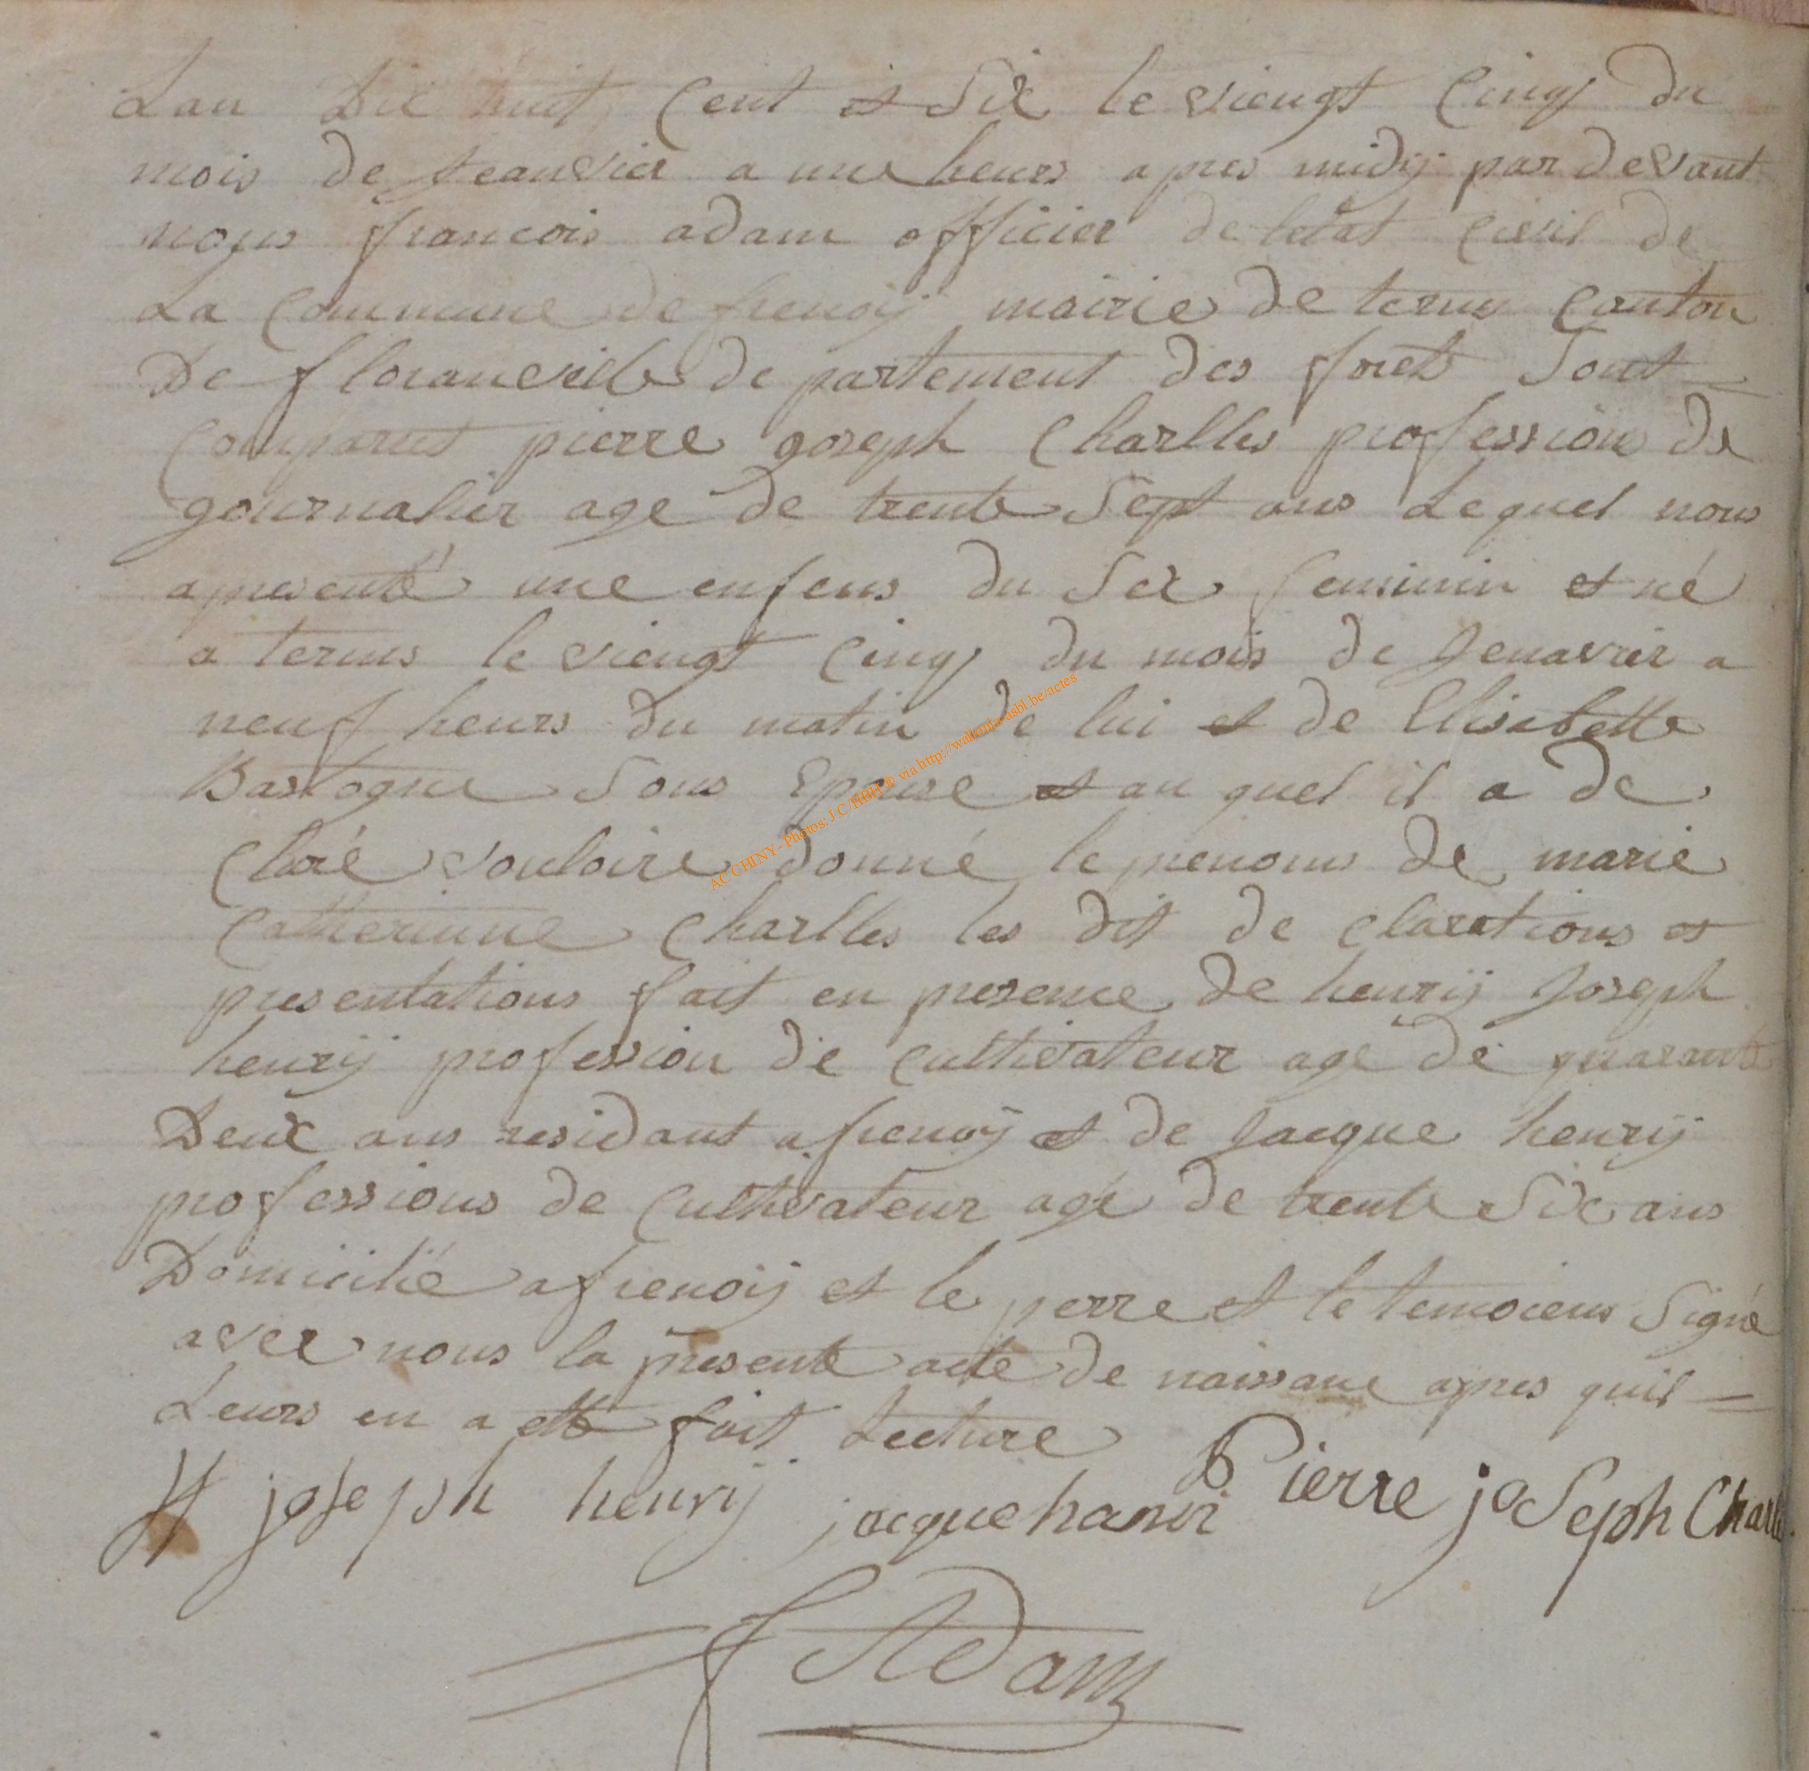 Lan Dix huit Cent et Six le viengt Cinq du
mois de Jeanvier a une heurs apres midij par devant
nous francois adam officier de letat Civil de
La Commune de frenoij mairie de termes Canton
De floranville de partement des forets Sont
Comparus pierre goseph Charlles profession de
gournalier age de trente Sept ans Lequel nous
a presenté une enfens du Sex feminin et né
a termes le viengt Cinq du mois de Jenavrier a
neuf heurs du matin de lui et de Elisabette
Bastogne Sous Epouse et au quel il a de
Claré vouloire donné le prenoms de marie
Catherinne Charlles les dit de clarations et
presentations fait en presence de henrij Joseph
henrij profession de Cultivateur age de quarante
Deux ans residant a frenoij et de Jacque henrij
professions de Cultivateur agé de trente Six ans
Domicilié a frenoij et le perre et le temoiens Signé
avec nous la presente acte de naissance apres quil
Leurs en a ette fait Lecture
H joseph henrij jacque hanri Pierre joSeph Charlle
f Adam
AC CHINY - Photos: J.C. via http://wallonia-asbl.be/actes